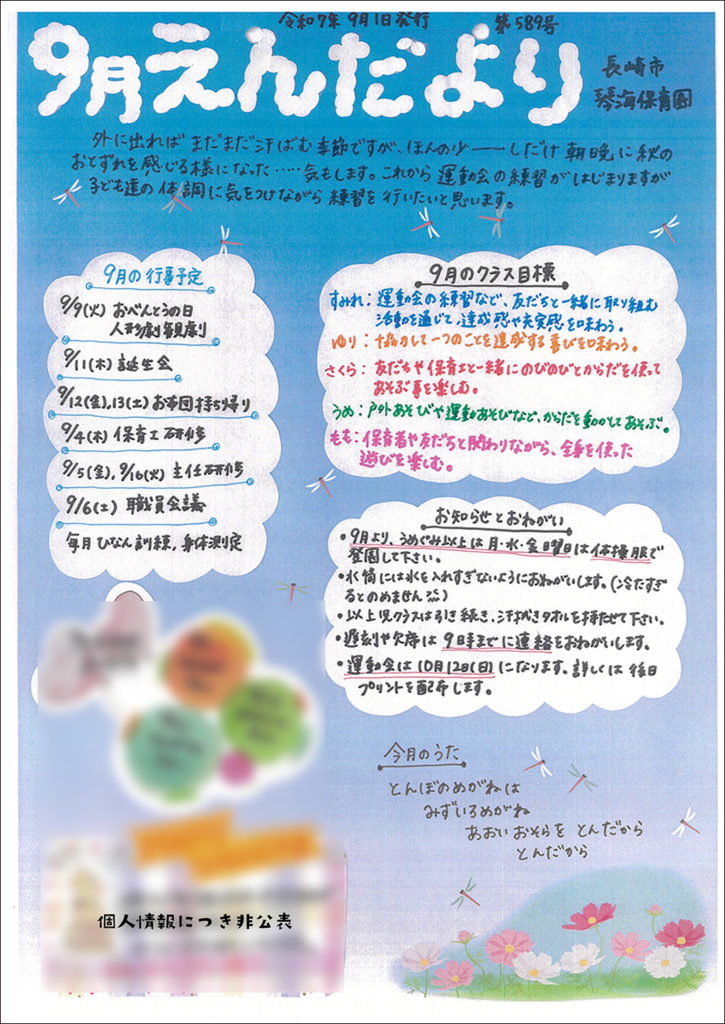 令和7年 9月1日発行 第589号
9月えんだより
長崎市
琴海保育園
外に出れば まだまだ汗ばむ季節ですが、ほんの少ーーしだけ 朝晩に秋の
おとずれを感じる様になった……気もします。これから 運動会の練習がはじまりますが
子ども達の体調に気をつけながら 練習を行いたいと思います。
9月の行事予定
9/9(火) おべんとうの日
人形劇観劇
9/11(木) 誕生会
9/12(金),13(土) お布団持ち帰り
9/4(木) 保育士研修
9/5(金),9/16(火) 主任研修
9/6(土) 職員会議
毎月 ひなん訓練,身体測定
9月のクラス目標
すみれ:運動会の練習など、友だちと一緒に取り組む
活動を通じて、達成感や充実感を味わう。
ゆり:協力して一つのことを達成する喜びを味わう。
さくら:友だちや保育士と一緒にのびのびとからだを使って
あそぶ事を楽しむ。
うめ:戸外あそびや運動あそびなど、からだを動かしてあそぶ。
もも:保育者や友だちと関わりながら、全身を使った
遊びを楽しむ。
お知らせとおねがい
・9月より、うめぐみ以上は月・水・金曜日は体操服で
登園して下さい。
・水筒には氷を入れすぎないようにおねがいします。(冷たすぎ
るとのめません)
・以上児クラスは引き続き、汗拭きタオルを持たせて下さい。
・遅刻や欠席は9時までに連絡をおねがいします。
・運動会は10月12日(日)になります。詳しくは後日
プリントを配布します。
今月のうた
とんぼのめがねは
みずいろめがね
あおいおそらを とんだから
とんだから
個人情報につき非公表